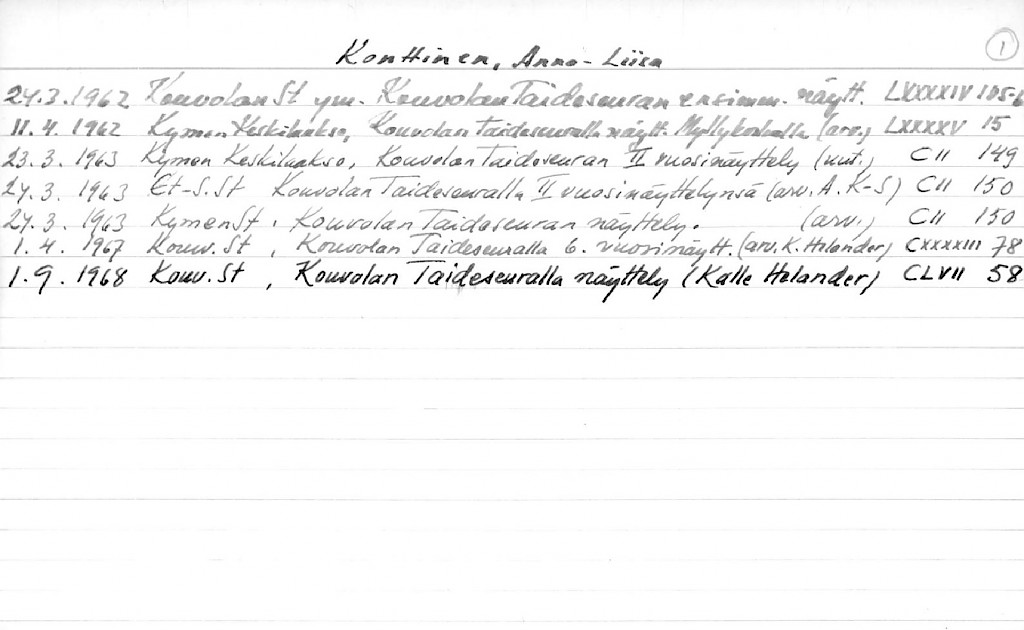 1
Konttinen, Anna-Liisa
24.3.1962 Kouvolan St ym. Kouvolan Taideseuran ensimm. näytt. LXXXXIV 105-6
11.4.1962 Kymen Keskilaakso, Kouvolan Taideseuralla näytt. Myllykoskella (arv.) LXXXXV 15
23.3.1963 Kymen Keskilaakso, Kouvolan Taideseuran II vuosinäyttely (uut.) CII 149
24.3.1963 Et-S.St Kouvolan Taideseuralla II vuosinäyttelynsä (arv. A. K-S) CII 150
24.3.1963 Kymen St, Kouvolan Taideseuran näyttely. (arv.) CII 150
1.4.1967 Kouv. St, Kouvolan Taideseuralla 6. vuosinäytt. (arv. K. Helander) CXXXXIII 78
1.9.1968 Kouv. St, Kouvolan Taideseuralla näyttely (Kalle Helander) CLVII 58